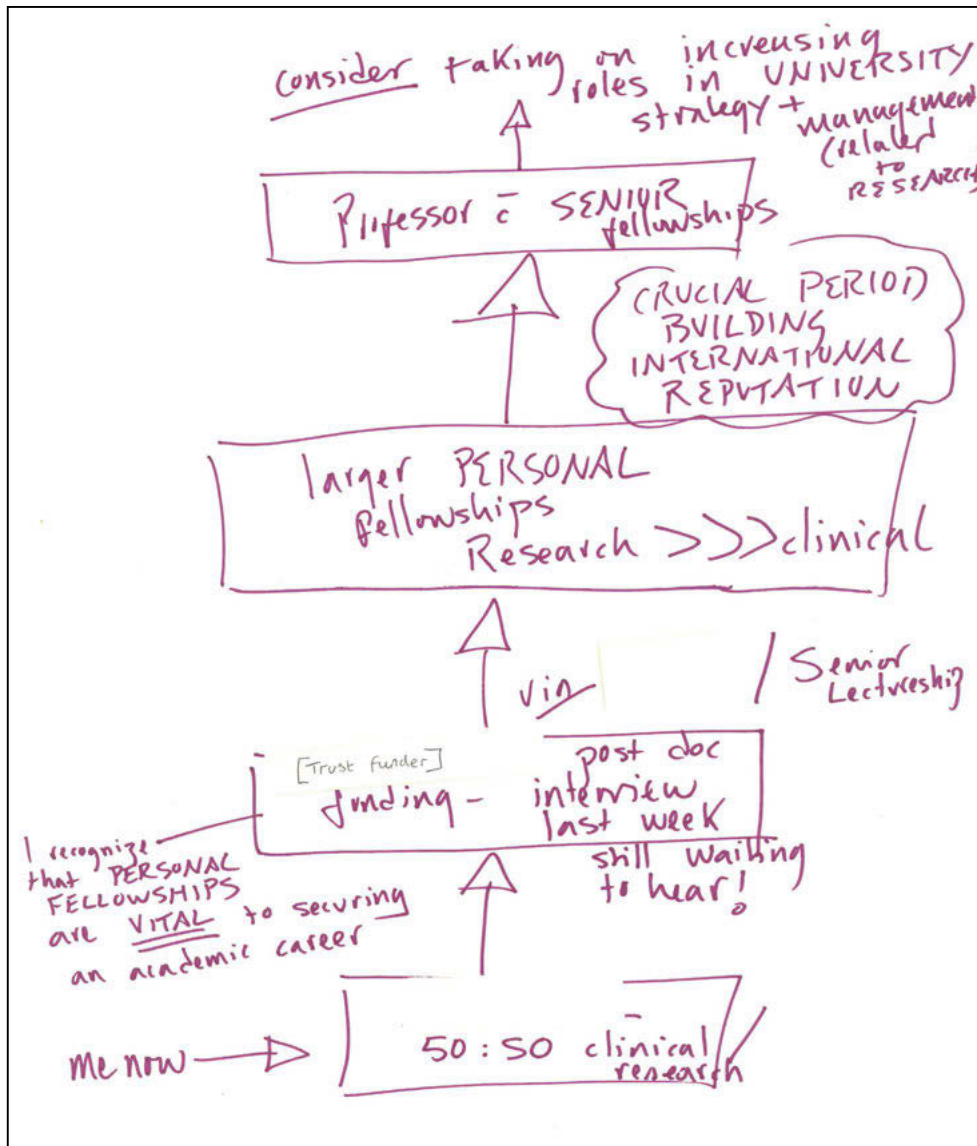 consider taking on increasing
roles in UNIVERSITY
strategy + management
(related
to
RESEARCH)
Professor c̄ SENIOR
fellowships
CRUCIAL PERIOD
BUILDING
INTERNATIONAL
REPUTATION
larger PERSONAL
fellowships
Research >>> clinical
via
/ Senior
Lectureship
[Trust funder]
funding - post doc
interview
last week
still waiting
to hear!
I recognize
that PERSONAL
FELLOWSHIPS
are VITAL to securing
an academic career
me now
50:50 clinical
research